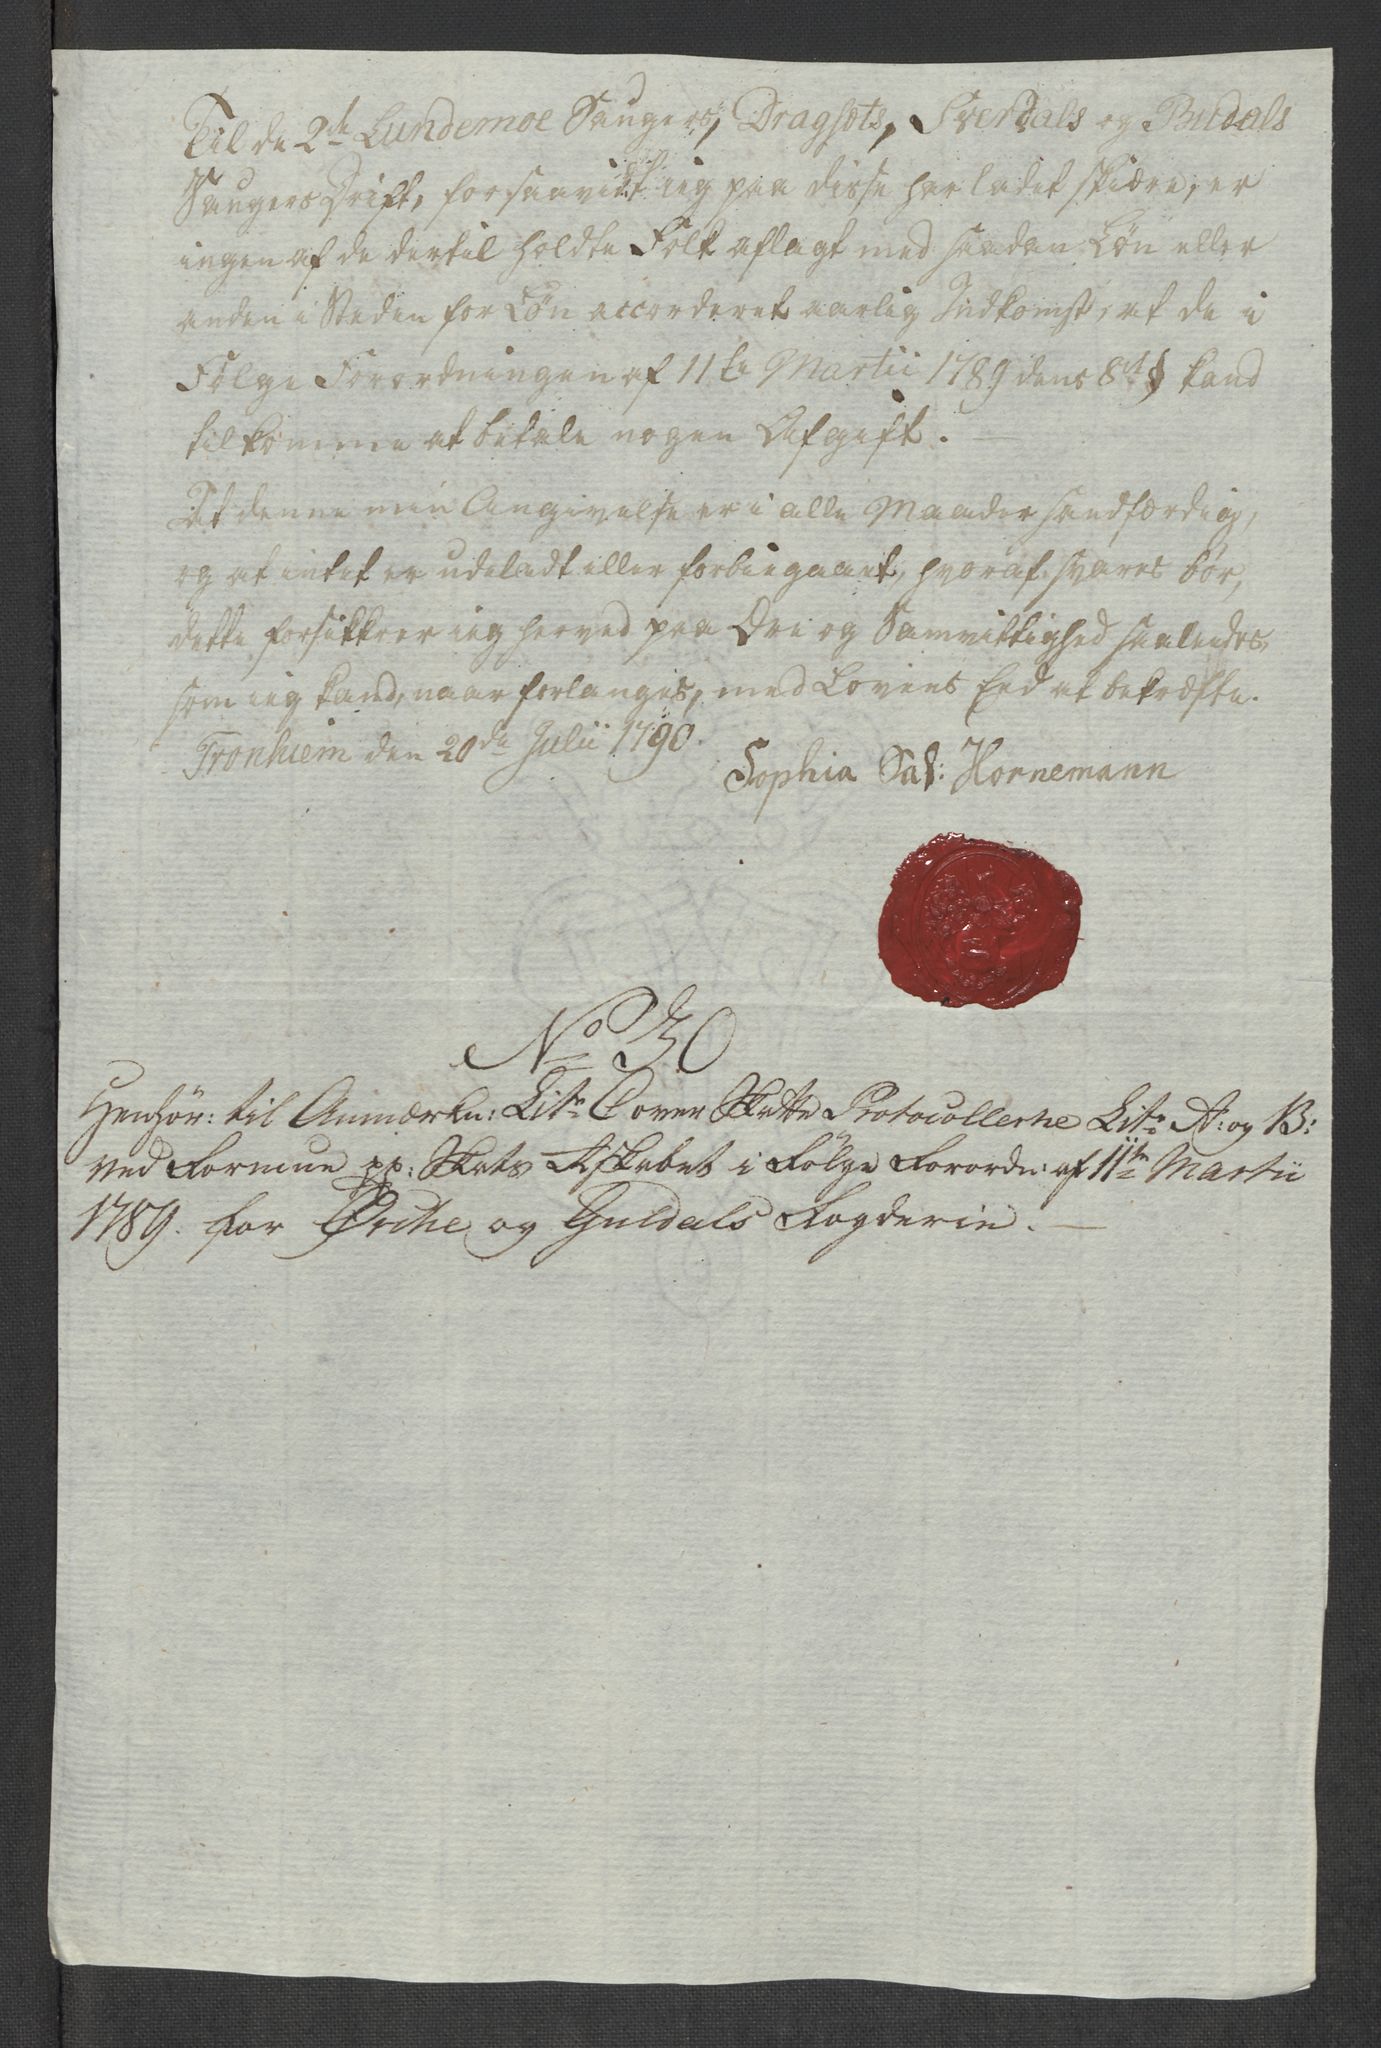 Til de 2de Lundemoe Sauger, Dragsets, Sverdals og Budals
Saugers Drift, forsaavidt ieg paa disse har ladet skiære, er
ingen af de dertil holdte Folk aflagt med saadan Løn eller
anden i Steden for Løn accorderet aarlig Indkomst, at de i
Følge Forordningen af 11te Martii 1789 dens 8de § kand
tilkomme at betale nogen Afgift. —
At denne min Angivelse er i alle Maader sandfærdig,
og at intet er udeladt eller forbiegaaet, hvoraf svares bör,
dette forsikkrer ieg herved paa Ære og Samvittighed saaledes,
som ieg kand, naar forlanges, med Lovens Eed at bekræfte.
Tronhiem den 20de Julii 1790.
Sophia Sal: Hornemann
No 30
Henhör: til Anmærkn: Litr C over Skatte Protocollerne Litr A: og B:
ved Formue pp: Skats Afskabet i Følge Forordn: af 11te Martii
1789. for Ørche og Guldals Fogderie. —